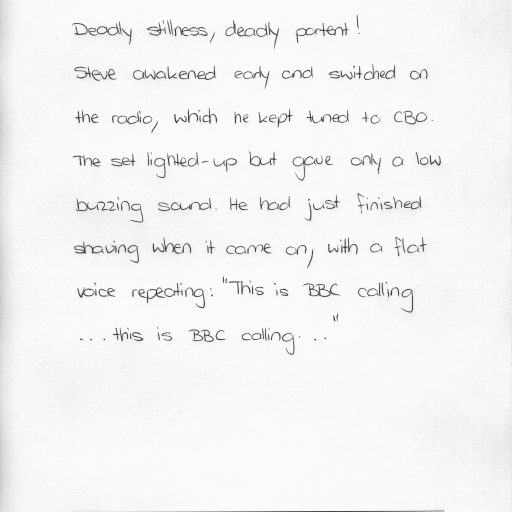 Deadly stillness, deadly portent!
Steve awakened early and switched on
the radio, which he kept tuned to CBO.
The set lighted-up but gave only a low
buzzing sound. He had just finished
shaving when it came on, with a flat
voice repeating: "This is BBC calling
...this is BBC calling..."